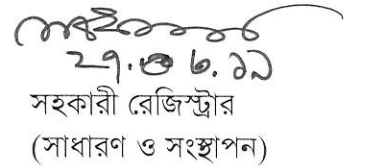 ২৭.০৬.১৯
সহকারী রেজিস্ট্রার
(সাধারণ ও সংস্থাপন)